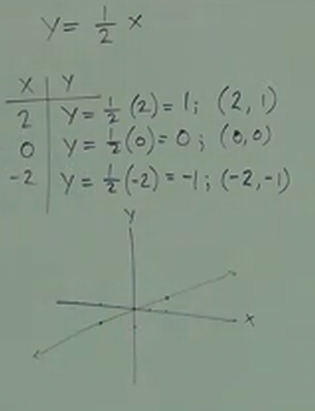 Y = 1/2 x
X Y
2 Y = 1/2 (2) = 1; (2, 1)
0 Y = 1/2 (0) = 0; (0,0)
-2 Y = 1/2 (-2) = -1; (-2,-1)
Y
X